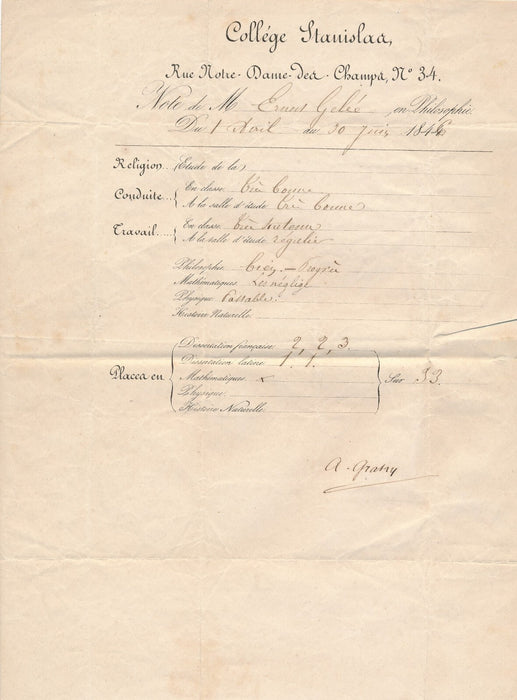 Collége Stanislas,
Rue Notre-Dame-des-Champs, N° 34.
Note de M Ernest Gelée, en Philosophie
Du 1 Avril au 30 Juin 1846
Religion (Etude de la)
Conduite En classe Très bonne
A la salle d'étude très bonne
Travail En classe Très
A la salle d'étude régulier
Philosophie Progrès
Mathématiques Les néglige
Physique Passable.
Histoire Naturelle
Places en Dissertation française 2, 2, 3
Dissertation latine 1. 1.
Mathématiques x
Physique
Histoire Naturelle
Sur 33.
A. Gratry